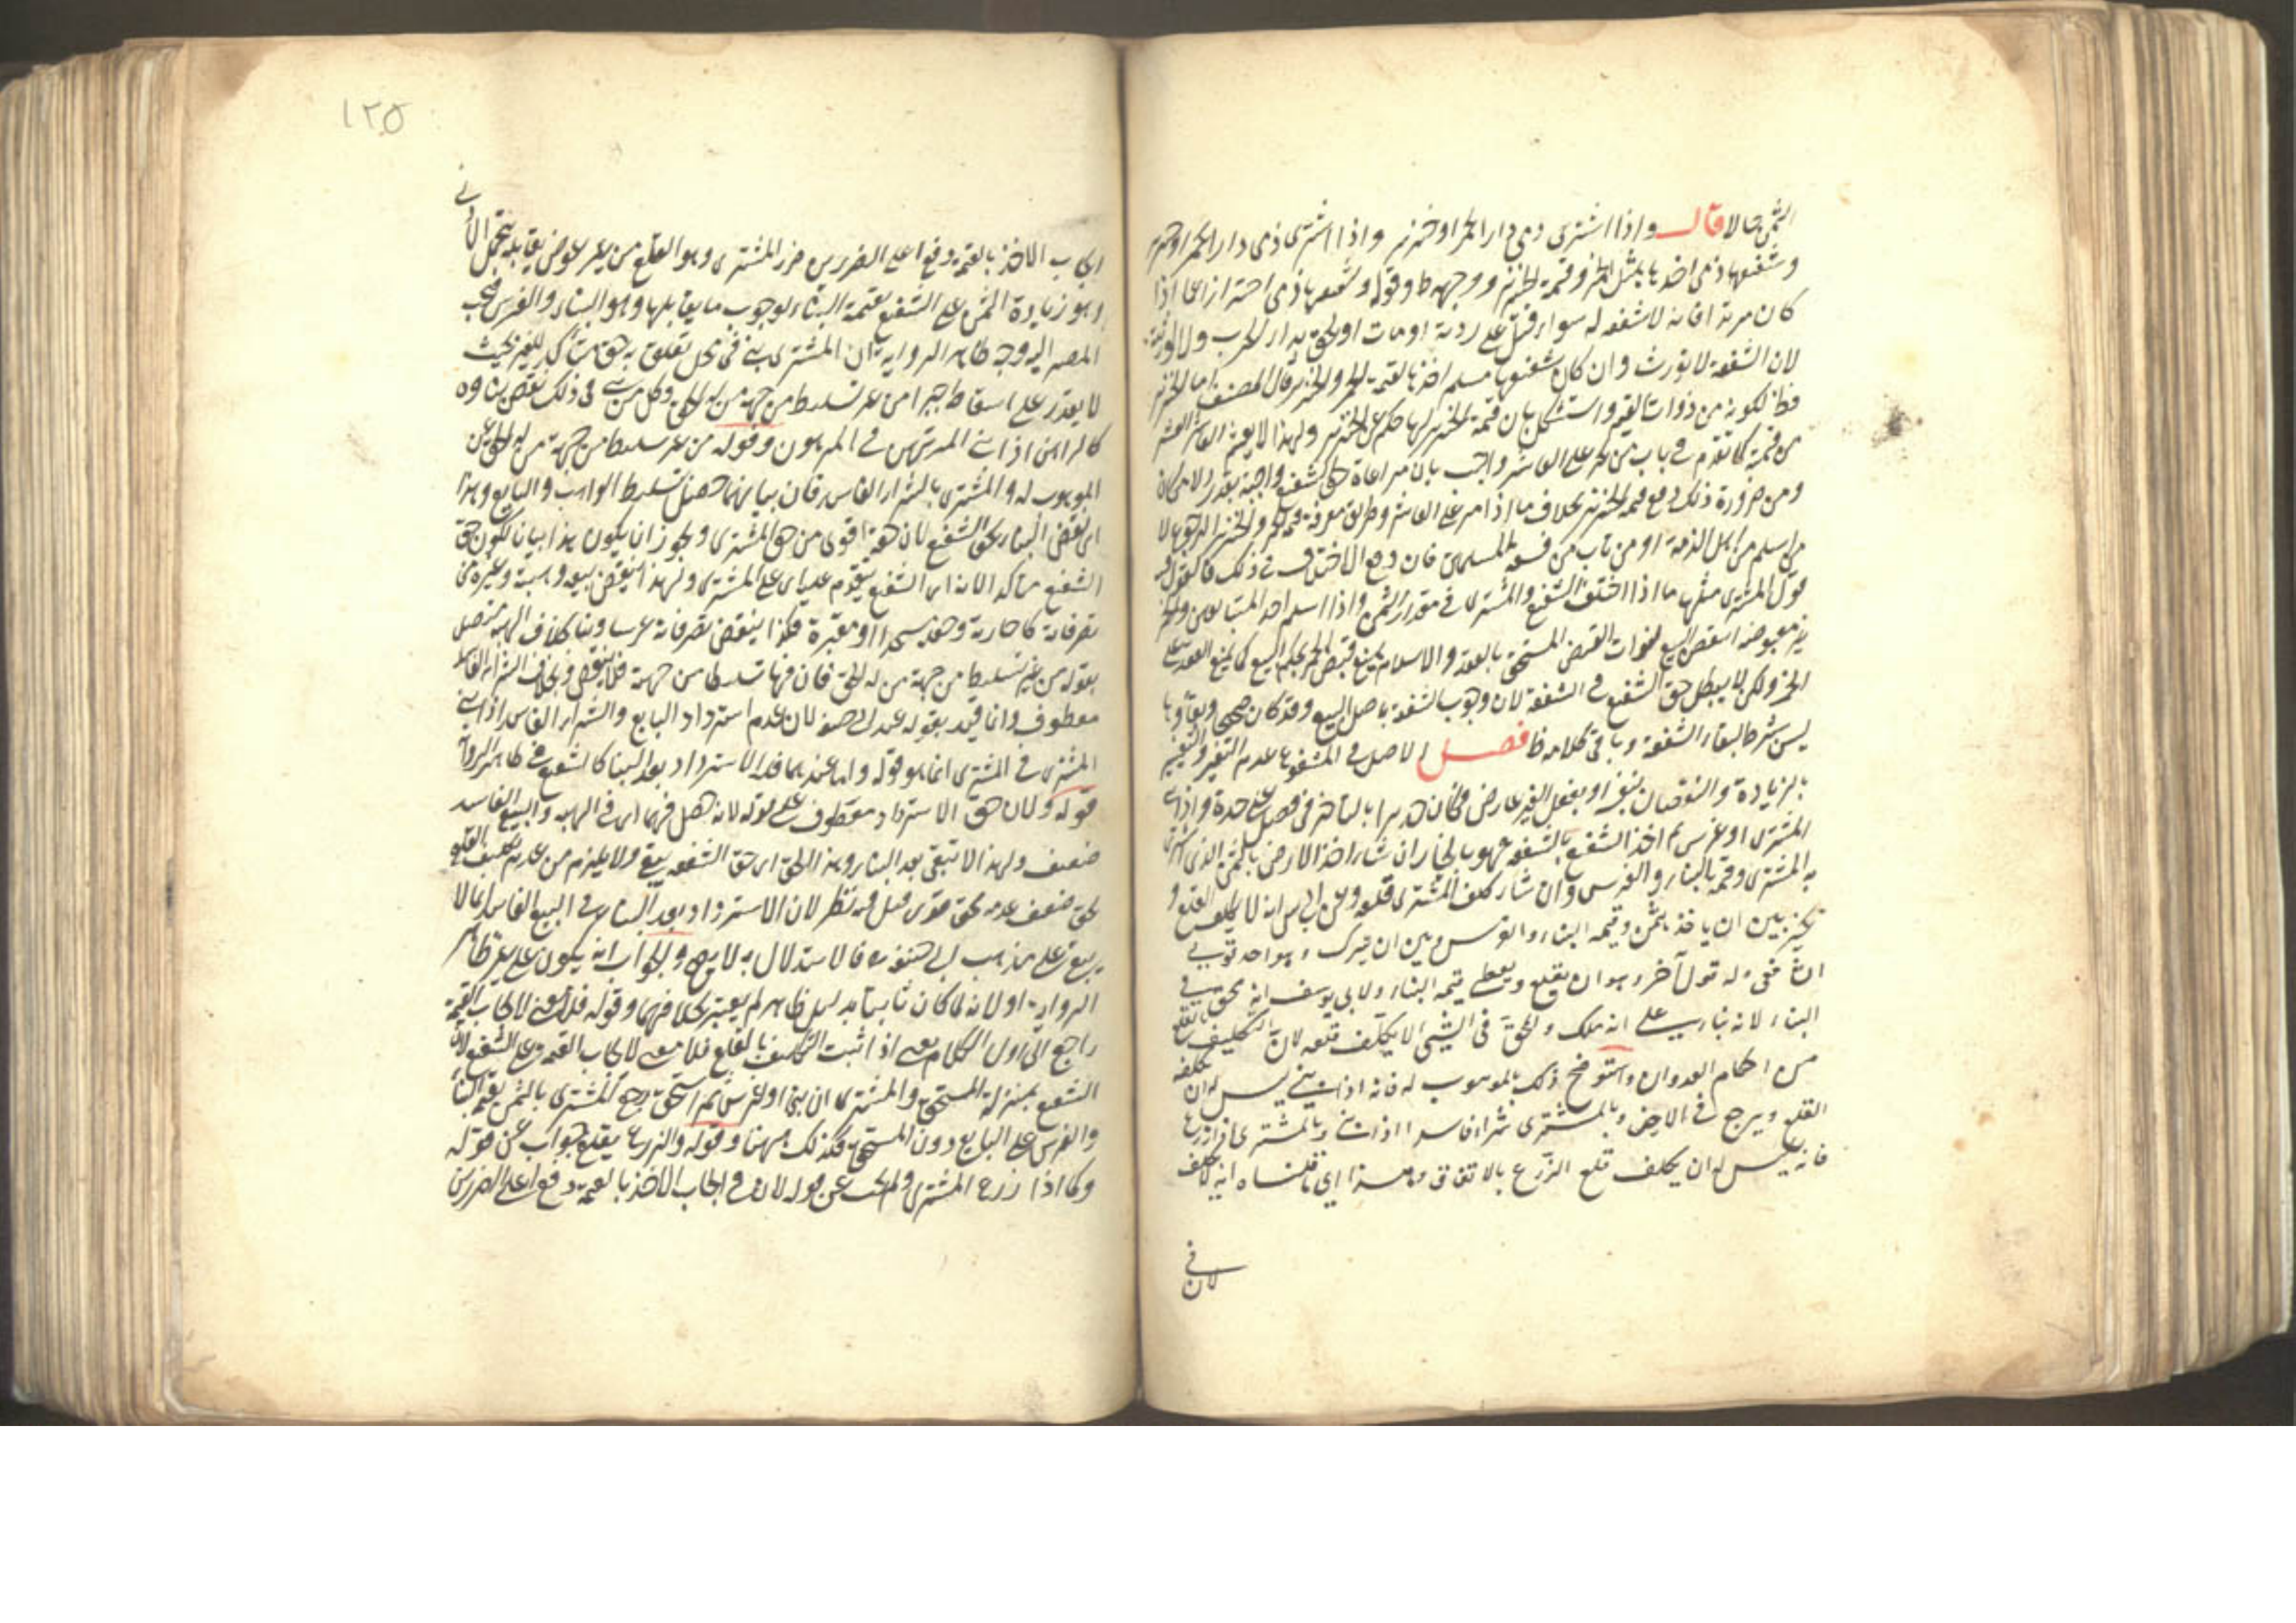 الثمن حالا قال واذا اشترى ذمي دارا بخمر او خنزير واذا اشترى ذمى دارا بخمر او خنزير
وشفيعها ذمى اخذها بمثل الخمر وقيمة الخنزير ووجهه ظ وقوله وشفيعها ذمى احترازا عما اذا
كان مرتدا فانه لا شفعه له سواء قتل على ردته او مات او لحق بدار الحرب ولا لورثته
لان الشفعة لا تورث وان كان شفيعها مسلم اخذها بقيمة الخمر والخنزير قال المصنف اما الخنزير
فظ لكونه من ذوات القيم واستشكل بان قيمة الخنزير لها حكم عين الخنزير ولهذا لا يعشر العاشر
من قيمته كما تقدم في باب من يمر على العاشر واجيب بان مراعاة حق الشفيع واجبة بقدر الامكان
ومن ضرورة ذلك دفع قيمة الخنزير بخلاف ما اذا مر على العاشر وطريق معرفة قيمة الخمر والخنزير الرجوع الى
من اسلم من اهل الذمة او من تاب من فسقة المسلمين فان وقع الاختلاف في ذلك فالقول
قول المشترى مثلها ما اذا اختلف الشفيع والمشترى في مقدار الثمن واذا اسلم احد المتبايعين والخمر
غير مقبوضه انتقض البيع لفوات القبض المستحق بالعقد والاسلام يمنع قبض الخمر بحكم البيع كما يمنع العقد على
الخمر ولكن لا يبطل حق الشفيع في الشفعة لان وجوب الشفعة باصل البيع وقد كان صحيحا وبقاؤها
ليس شرطا لبقاء الشفعة وباقى كلامه ظ فصل الاصل فى المشفوع عدم التغير والتغيير
بالزيادة والنقصان بنفسه او بفعل الغير عارض فكان جديرا بالتاخير في فصل على حدة واذا بنى
المشترى او غرس ثم اخذ الشفيع بالشفعه فهو بالخيار ان شاء اخذ الارض بالثمن الذى اشترى
به المشترى وقيمة البناء والغرس وان شاء كلف المشترى قلعه وعن ابى يوسف انه لا يكلف القلع و
يخير بين ان ياخذ بالثمن وقيمة البناء والغرس وبين ان يترك وبه احد قولي
الشافعى وله قول آخر وهو ان يقلع ويعطى قيمة البناء ولابى يوسف انه محق في
البناء لانه بناه على انه ملكه والمحق فى الشيء لا يكلف قلعه لان التكليف بالقلع
من احكام العدوان واستوضح ذلك بالموهوب له فانه اذا بنى ليس له ان يكلفه
القلع ويرجع فى الارض وبالمشترى شراء فاسدا اذا بنى وبالمشترى اذا زرع
فانه ليس له ان يكلف قلع الزرع بالاتفاق وهذا اى ما قلناه انه لا يكلف
لان في
١٢٥
ايجاب الاخذ بالقيمة دفع اعلى الضررين ضرر المشترى وهو القلع من غير عوض يقابله بتحمل الادنى
وهو زيادة الثمن على الشفيع بقيمة البناء لوجوب ما يقابلها وهو البناء والغرس فيجب
المصير اليه وجه ظاهر الرواية ان المشترى بنى فى محل تعلق به حق متاكد للغير بحيث
لا يقدر على اسقاطه جبرا من غير تسليط من جهة من له الحق وكل من بنى فى ذلك ينقض بناوه
كالراهن اذا بنى في المرهون وقوله من غير تسليط من جهة من له الحق عن
الموهوب له والمشترى بالشراء الفاسد فان بناءهما حصل بتسليط الواهب والبايع وهذا
اى نقض البناء بحق الشفيع لان حقه اقوى من حق المشترى ويجوز ان يكون هذا بيانا لكون حق
الشفيع متاكدا لانه اى الشفيع يتقدم عليه اى على المشترى ولهذا ينقض بيعه وهبته وغيره من
تصرفاته كاجارته وجعله مسجدا او مقبرة فكذا ينقض تصرفاته غرسا وبناء بخلاف الهبة متصل
بقوله من غير تسليط من جهة من له الحق فان فيها تسليطا من جهته فلا ينقض وبخلاف الشراء الفاسد
معطوف وانما قيد بقوله عند ابى حنيفه لان عدم استرداد البايع والشراء الفاسد اذا بنى
المشترى فى المشترى انما هو قوله واما عندهما فله الاسترداد بعد البناء كالشفيع في ظاهر الرواية
قوله ولان حق الاسترداد معطوف على قوله لانه حصل فيهما اى فى الهبه والبيع الفاسد
ضعيف ولهذا لا تبقى بعد البناء وهذا الحق اى حق الشفعه يبقى ولا يلزم من عدم تكليف القلع
لحق ضعيف عدمه لحق قوى قيل فيه نظر لان الاسترداد بعد البناء في البيع الفاسد انما لا
يبقى على مذهب ابى حنيفة فالاستدلال به لا يصح والجواب انه يكون على غير ظاهر
الرواية او لانه لما كان ثابتا بدليل ظاهر لم يعتبر بخلافهما وقوله فلا معنى لايجاب القيمة
راجع الى اول الكلام يعنى اذا ثبت التكليف بالقلع فلا معنى لايجاب القيمة على الشفيع لان
الشفيع بمنزلة المستحق والمشترى ان بنى او غرس ثم استحق رجع المشترى بالثمن بقيمة البناء
والغرس على البايع دون المستحق فكذلك ههنا وقوله والزرع يقلع جواب عن قوله
وكما اذا زرع المشترى ولم يجب عن قوله لان في ايجاب الاخذ بالقيمة دفع اعلى الضررين